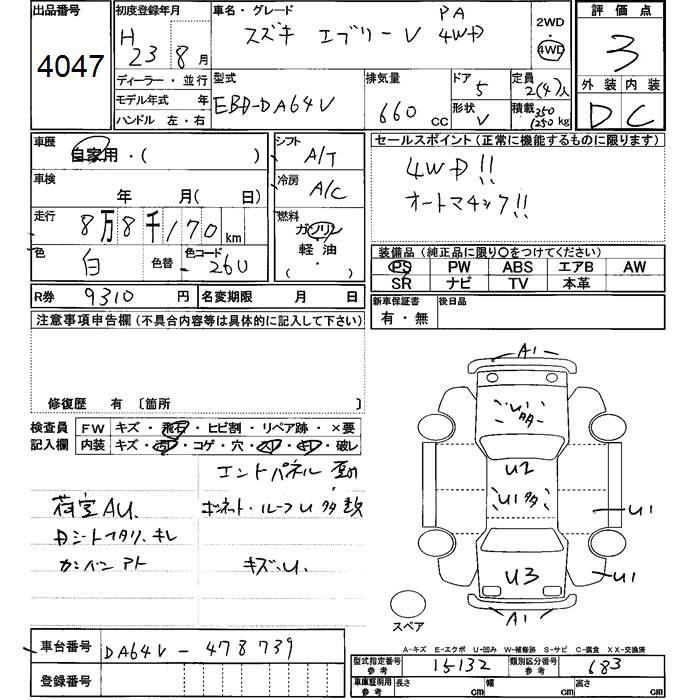 出品番号
4047
初度登録年月
H 23 8月
車名・グレード
スズキ エブリーV PA 4WD
2WD
・
4WD
評価点
3
ディーラー・並行
モデル年式 年
ハンドル 左・右
型式
EBD-DA64V
排気量
660 CC
ドア
5
形状
V
定員
2(4)人
積載 350
(250kg
外装 内装
D C
車歴
自家用・( )
シフト
A/T
車検
年 月( 日)
冷房
A/C
走行
8万8千170km
燃料
ガソリン
軽油
・( )
色
白
色替
色コード
26U
R券
9310円
名変期限 月 日
セールスポイント(正常に機能するものに限ります)
4WD!!
オートマチック!!
装備品(純正品に限り○をつけてください)
PS PW ABS エアB AW
SR ナビ TV 本革
新車保証書
有・無
後日品
注意事項申告欄(不具合内容等は具体的に記入して下さい)
修復歴 有 〔箇所
検査員
記入欄
FW キズ・飛石・ヒビ割・リペア跡・×要
内装 キズ・汚・コゲ・穴・スレ・キレ・破レ
荷室AU.
Dシートヘタリ.キレ
カンバンアト
エントパネル
ボンネット・ルーフU多数
キズ.U.
A1
U1多
U2
U1多
U1
U3
U1
A1
スペア
A-キズ E-エクボ U-凹み W-補修跡 S-サビ C-腐食 XX-交換済
車台番号
DA64V-478739
登録番号
型式指定番号
参考
15132
類別区分番号
参考
683
車庫証明用
参考
長さ cm
幅 cm
高さ cm